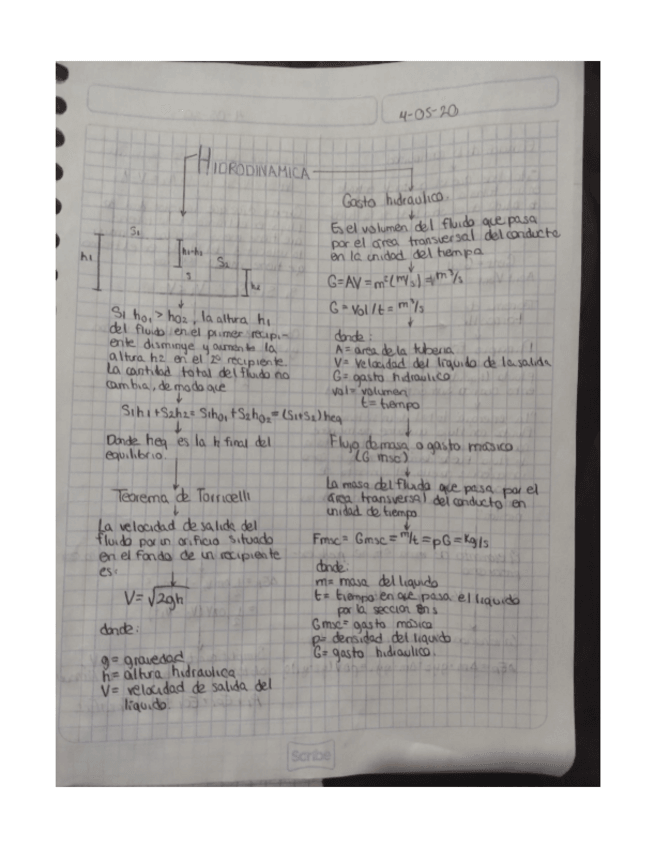 4-05-20
HIDRODINAMICA
S1
h1
h1-h2
S2
h2
Si h01 > h02, la altura h1
del fluido en el primer recipi-
ente disminuye y aumenta la
altura h2 en el 2º recipiente.
La cantidad total del fluido no
cambia, de modo que
S1h1 + S2h2 = S1h01 + S2h02 = (S1+S2) heq
Donde heq es la h final del
equilibrio.
Teorema de Torricelli
La velocidad de salida del
fluido por un orificio situado
en el fondo de un recipiente
es:
V = √2gh
donde:
g = gravedad
h = altura hidraulica
V = velocidad de salida del
liquido
Gasto hidraulico.
Es el volumen del fluido que pasa
por el área transversal del conducto
en la unidad del tiempo
G = AV = m²(m/s) = m³/s
G = Vol/t = m³/s
donde:
A = area de la tuberia
V = velocidad del líquido de la salida
G = gasto hidraulico
vol = volumen
t = tiempo
Flujo de masa o gasto másico
(G msc)
La masa del fluido que pasa por el
área transversal del conducto en
unidad de tiempo
Fmsc = Gmsc = m/t = pG = kg/s
donde:
m = masa del liquido
t = tiempo en que pasa el liquido
por la seccion en s
Gmsc = gasto másico
p = densidad del liquido
G = gasto hidraulico.
Scribe